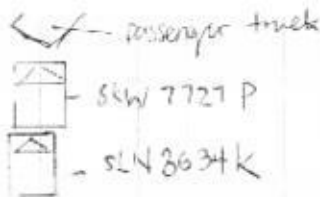 - passenger truck
- SKW 7727 P
- SLN 3634K